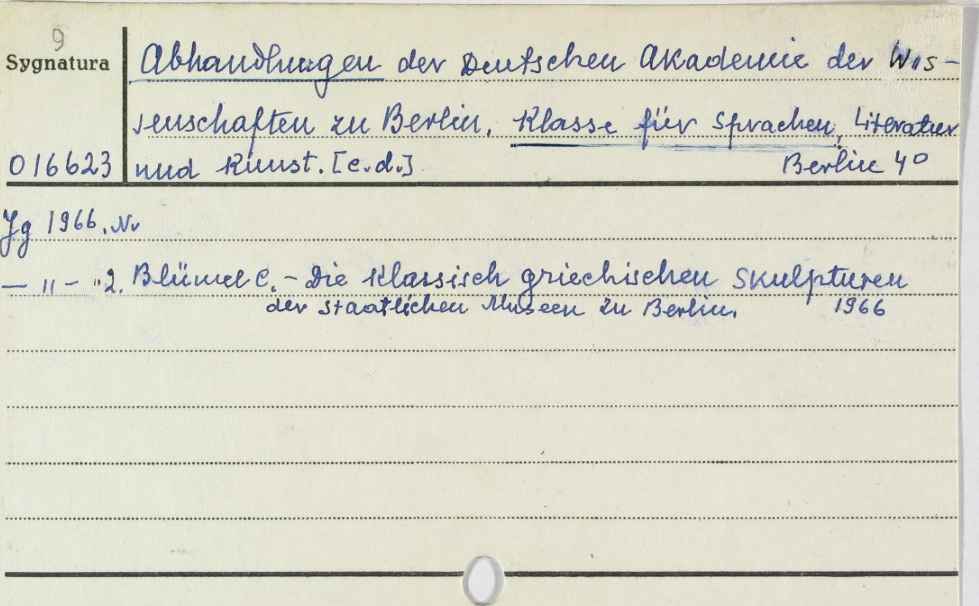 9
Sygnatura
Abhandlungen der Deutschen Akademie der Wis-
senschaften zu Berlin. Klasse für Sprachen, Literatur
016623 und Kunst. [c.d.] Berlin 4º
Jg 1966. Nr
— " — "2. Blümel C. - Die klassisch griechischen Skulpturen
der Staatlichen Museen zu Berlin. 1966